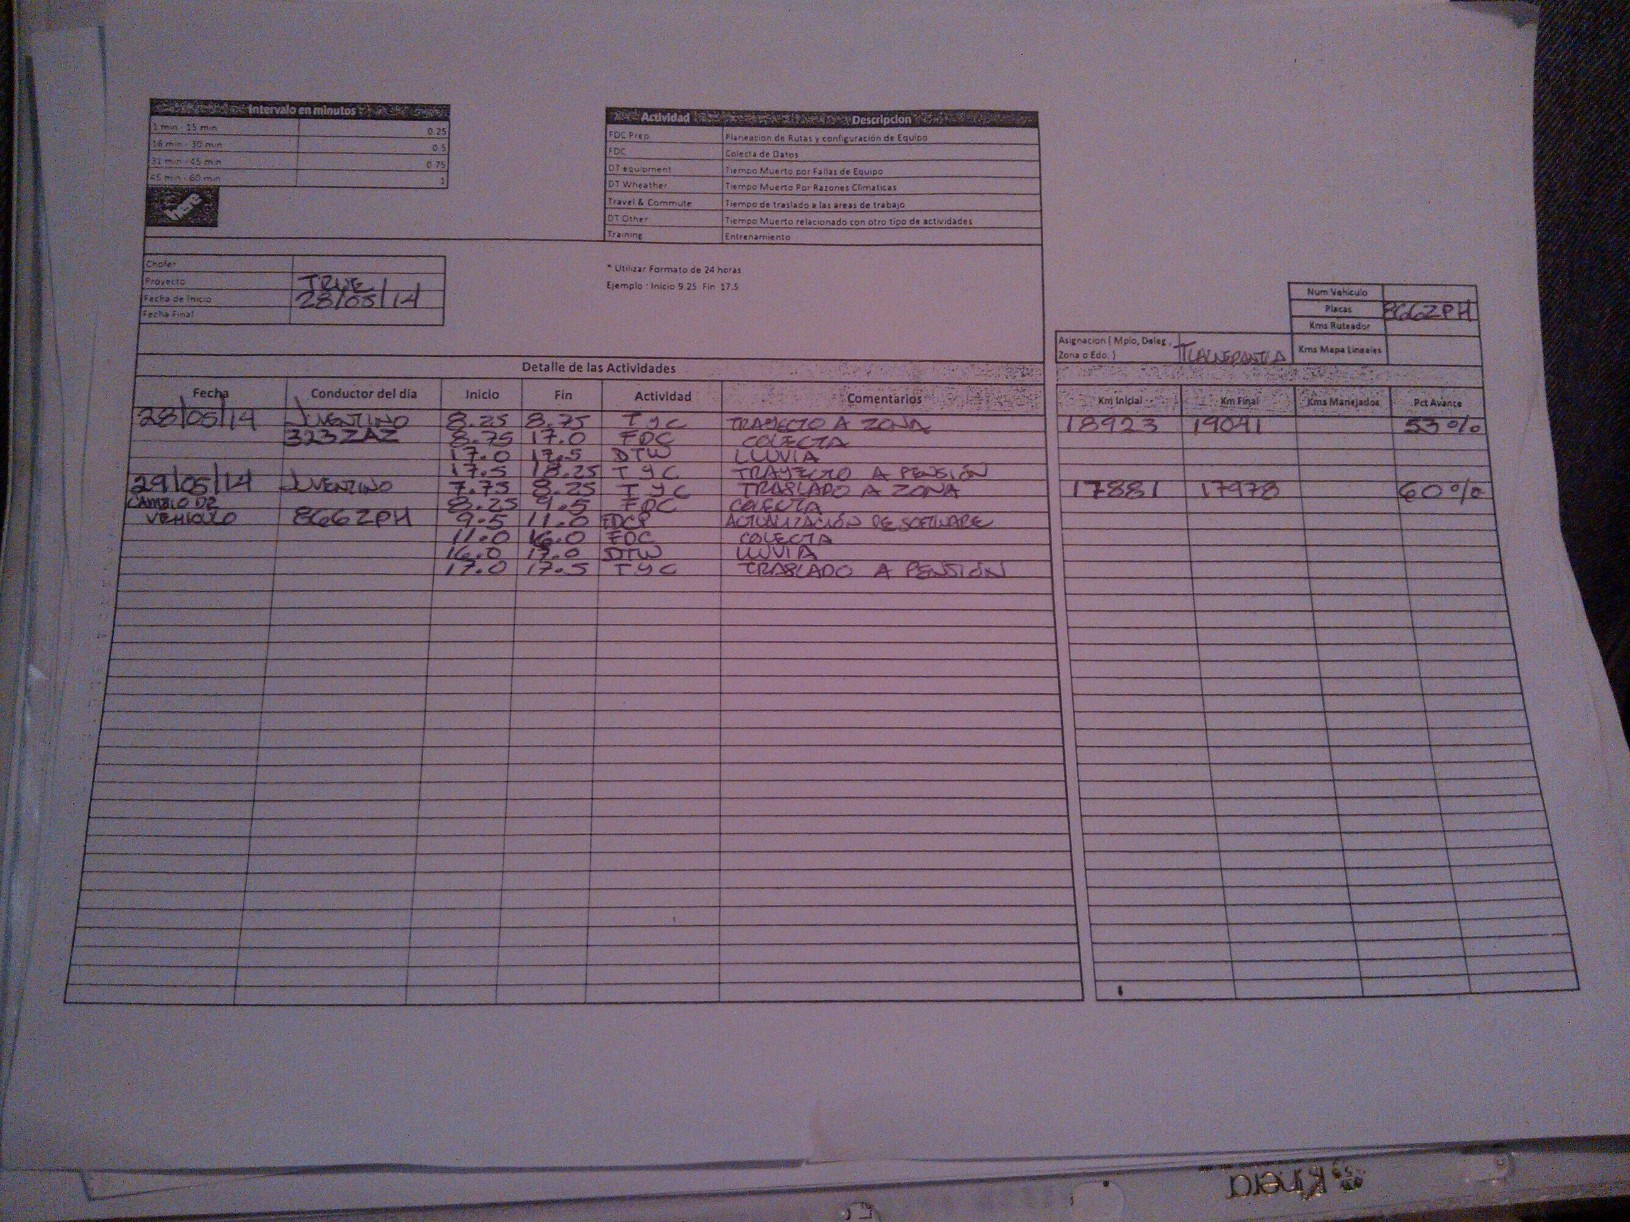 Intervalo en minutos
1 min - 15 min 0.25
16 min - 30 min 0.5
31 min - 45 min 0.75
45 min - 60 min 1
here
Actividad Descripcion
FDC Prep Planeacion de Rutas y configuración de Equipo
FDC Colecta de Datos
DT equipment Tiempo Muerto por Fallas de Equipo
DT Wheather Tiempo Muerto Por Razones Climaticas
Travel & Commute Tiempo de traslado a las areas de trabajo
DT Other Tiempo Muerto relacionado con otro tipo de actividades
Training Entrenamiento
Chofer
Proyecto TRUE
Fecha de Inicio 28/05/14
Fecha Final
* Utilizar Formato de 24 horas
Ejemplo : Inicio 9.25 Fin 17.5
Num Vehiculo
Placas 866ZPH
Kms Ruteador
Kms Mapa Lineales
Asignacion ( Mpio, Deleg ,
Zona o Edo. ) TLALNEPANTLA
Detalle de las Actividades
Fecha Conductor del dia Inicio Fin Actividad Comentarios Km Inicial Km Final Kms Manejados Pct Avance
28/05/14 JUVENTINO 8.25 8.75 T y C TRAYECTO A ZONA 18923 19041 53%
323ZAZ 8.75 17.0 FDC COLECTA
17.0 17.5 DTW LLUVIA
17.5 18.25 T Y C TRAYECTO A PENSIÓN
29/05/14 JUVENTINO 7.75 8.25 T y C TRASLADO A ZONA 17881 17978 60%
CAMBIO DE 8.25 9.5 FDC COLECTA
VEHICULO 866ZPH 9.5 11.0 FDCP ACTUALIZACIÓN DE SOFTWARE
11.0 16.0 FDC COLECTA
16.0 17.0 DTW LLUVIA
17.0 17.5 T y C TRASLADO A PENSIÓN
Kinera